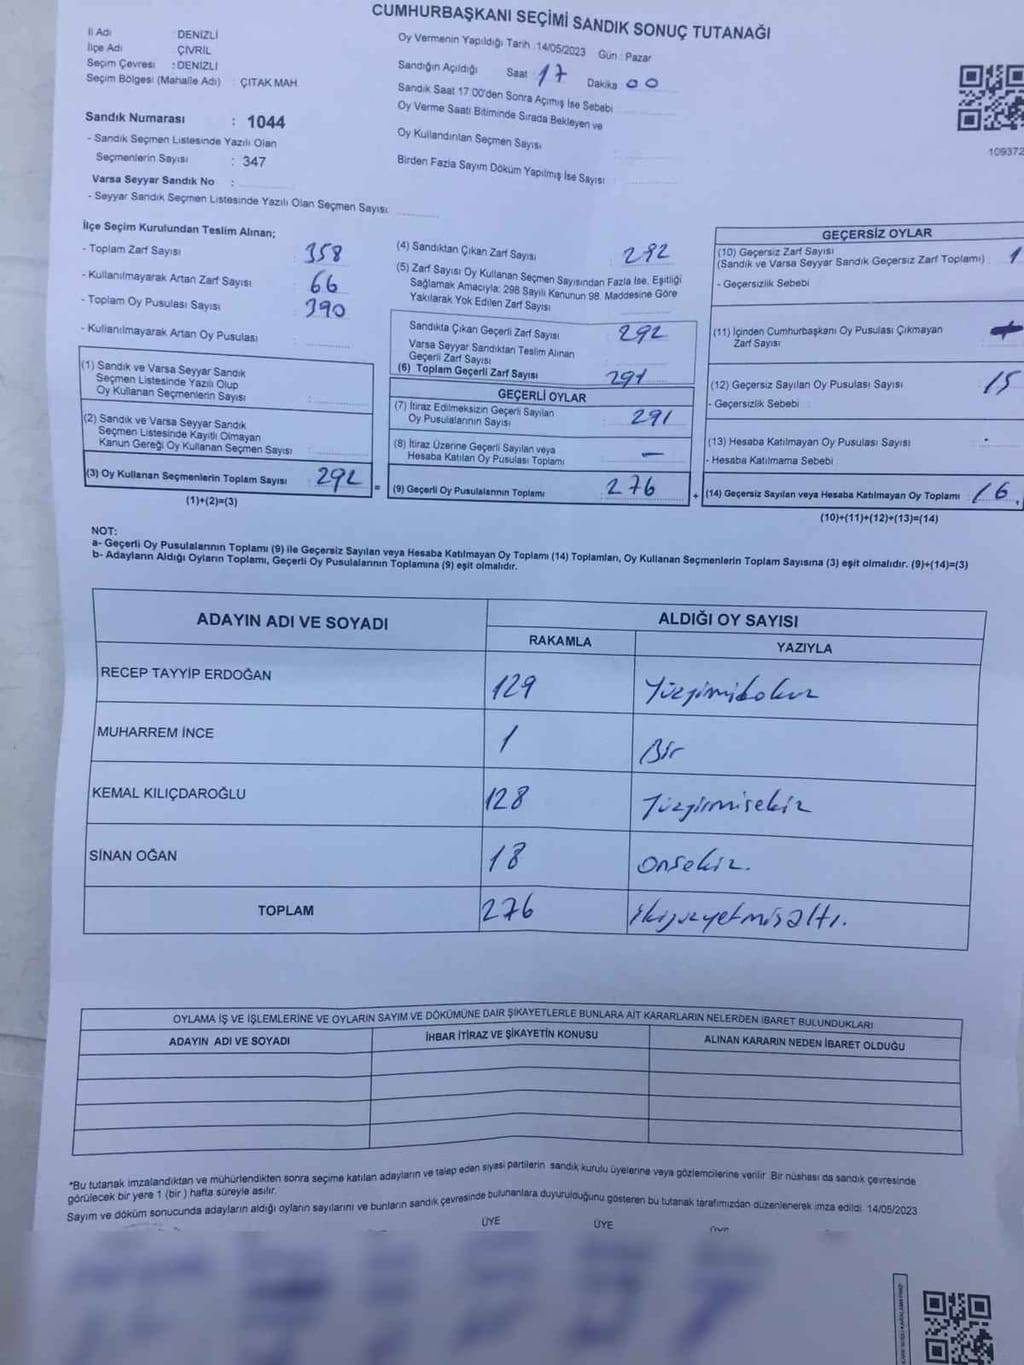 CUMHURBAŞKANI SEÇİMİ SANDIK SONUÇ TUTANAĞI
İl Adı : DENİZLİ
İlçe Adı : ÇİVRİL
Seçim Çevresi : DENİZLİ
Seçim Bölgesi (Mahalle Adı) : ÇITAK MAH.
Oy Vermenin Yapıldığı Tarih : 14/05/2023 Gün : Pazar
Sandığın Açıldığı Saat 17 Dakika 00
Sandık Saat 17:00'den Sonra Açımış İse Sebebi
Oy Verme Saati Bitiminde Sırada Bekleyen ve
Oy Kullandırılan Seçmen Sayısı
Birden Fazla Sayım Döküm Yapılmış İse Sayısı
109372
Sandık Numarası : 1044
- Sandık Seçmen Listesinde Yazılı Olan
Seçmenlerin Sayısı : 347
Varsa Seyyar Sandık No :
- Seyyar Sandık Seçmen Listesinde Yazılı Olan Seçmen Sayısı:
İlçe Seçim Kurulundan Teslim Alınan;
- Toplam Zarf Sayısı 358
- Kullanılmayarak Artan Zarf Sayısı 66
- Toplam Oy Pusulası Sayısı 390
- Kullanılmayarak Artan Oy Pusulası
(1) Sandık ve Varsa Seyyar Sandık
Seçmen Listesinde Yazılı Olup
Oy Kullanan Seçmenlerin Sayısı :
(2) Sandık ve Varsa Seyyar Sandık
Seçmen Listesinde Kayıtlı Olmayan
Kanun Gereği Oy Kullanan Seçmen Sayısı :
(3) Oy Kullanan Seçmenlerin Toplam Sayısı : 292 =
(1)+(2)=(3)
(4) Sandıktan Çıkan Zarf Sayısı 292
(5) Zarf Sayısı Oy Kullanan Seçmen Sayısından Fazla İse, Eşitliği
Sağlamak Amacıyla; 298 Sayılı Kanunun 98. Maddesine Göre
Yakılarak Yok Edilen Zarf Sayısı
Sandıkta Çıkan Geçerli Zarf Sayısı 292
Varsa Seyyar Sandıktan Teslim Alınan
Geçerli Zarf Sayısı
(6) Toplam Geçerli Zarf Sayısı 291
GEÇERLİ OYLAR
(7) İtiraz Edilmeksizin Geçerli Sayılan
Oy Pusulalarının Sayısı 291
(8) İtiraz Üzerine Geçerli Sayılan veya
Hesaba Katılan Oy Pusulası Toplamı : —
(9) Geçerli Oy Pusulalarının Toplamı 276 +
GEÇERSİZ OYLAR
(10) Geçersiz Zarf Sayısı 1
(Sandık ve Varsa Seyyar Sandık Geçersiz Zarf Toplamı) :
- Geçersizlik Sebebi
(11) İçinden Cumhurbaşkanı Oy Pusulası Çıkmayan
Zarf Sayısı
(12) Geçersiz Sayılan Oy Pusulası Sayısı 15
- Geçersizlik Sebebi :
(13) Hesaba Katılmayan Oy Pusulası Sayısı -
- Hesaba Katılmama Sebebi
(14) Geçersiz Sayılan veya Hesaba Katılmayan Oy Toplamı 16
(10)+(11)+(12)+(13)=(14)
NOT:
a- Geçerli Oy Pusulalarının Toplamı (9) ile Geçersiz Sayılan veya Hesaba Katılmayan Oy Toplamı (14) Toplamları, Oy Kullanan Seçmenlerin Toplam Sayısına (3) eşit olmalıdır. (9)+(14)=(3)
b- Adayların Aldığı Oyların Toplamı, Geçerli Oy Pusulalarının Toplamına (9) eşit olmalıdır.
ADAYIN ADI VE SOYADI ALDIĞI OY SAYISI
RAKAMLA YAZIYLA
RECEP TAYYİP ERDOĞAN 129 Yüzyirmidokuz
MUHARREM İNCE 1 Bir
KEMAL KILIÇDAROĞLU 128 Yüzyirmisekiz
SİNAN OĞAN 18 onsekiz.
TOPLAM 276 ikiyüzyetmişaltı.
OYLAMA İŞ VE İŞLEMLERİNE VE OYLARIN SAYIM VE DÖKÜMÜNE DAİR ŞİKAYETLERLE BUNLARA AİT KARARLARIN NELERDEN İBARET BULUNDUKLARI
ADAYIN ADI VE SOYADI İHBAR İTİRAZ VE ŞİKAYETİN KONUSU ALINAN KARARIN NEDEN İBARET OLDUĞU
*Bu tutanak imzalandıktan ve mühürlendikten sonra seçime katılan adayların ve talep eden siyasi partilerin sandık kurulu üyelerine veya gözlemcilerine verilir. Bir nüshası da sandık çevresinde
görülecek bir yere 1 (bir) hafta süreyle asılır.
Sayım ve döküm sonucunda adayların aldığı oyların sayılarını ve bunların sandık çevresinde bulunanlara duyurulduğunu gösteren bu tutanak tarafımızdan düzenlenerek imza edildi. 14/05/2023
ÜYE ÜYE ÜYE